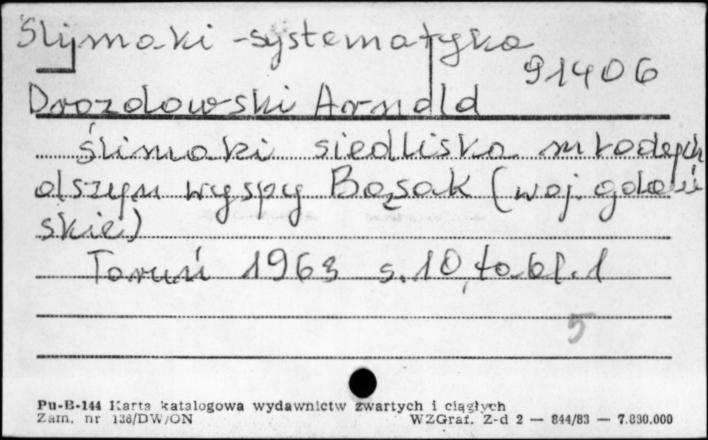 Ślimaki - systematyka
91406
Drozdowski Arnold
Ślimaki siedliska młodych
olszyn wyspy Bąsak (woj. gdań
skie)
Toruń 1963 s. 10, tabl. 1
5
Pu-B-144 Karta katalogowa wydawnictw zwartych i ciągłych
Zam. nr 136/DW/ON WZGraf. Z-d 2 — 844/83 — 7.830.000